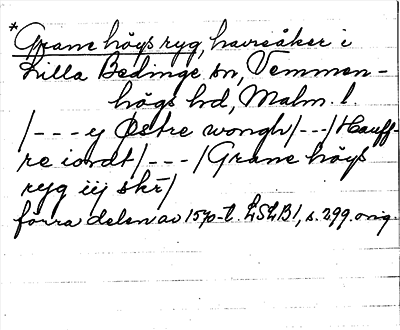 *Grane högs ryg, havreåker i
Lilla Bedinge sn, Vemmen-
högs hd, Malm. l.
/---y Østre wongh/---/Hauff-
re iordt/---/Grane högs
ryg iij skr/
förra delen av 1570-t. LSLB1, s. 299. orig.